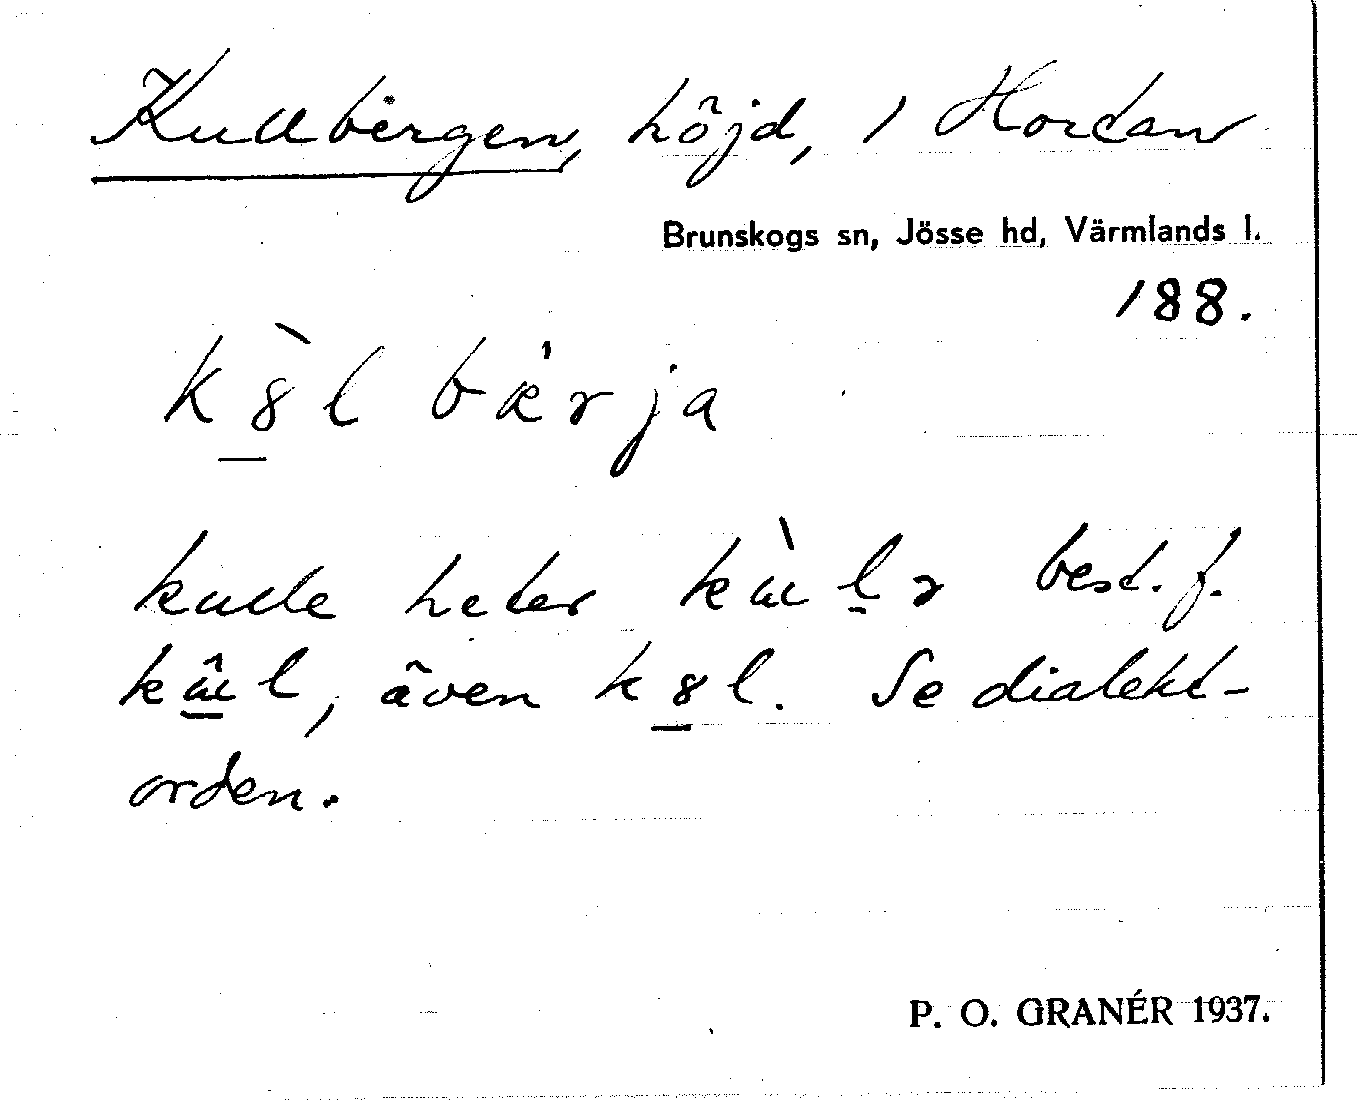 Kullbergen, höjd, 1 Hordan
Brunskogs sn, Jösse hd, Värmlands l.
188.
k8̲̀l bærja
kulle heter kùl̲r best. f.
kûl, även k8̲l. Se dialekt-
orden.
P. O. GRANÉR 1937.